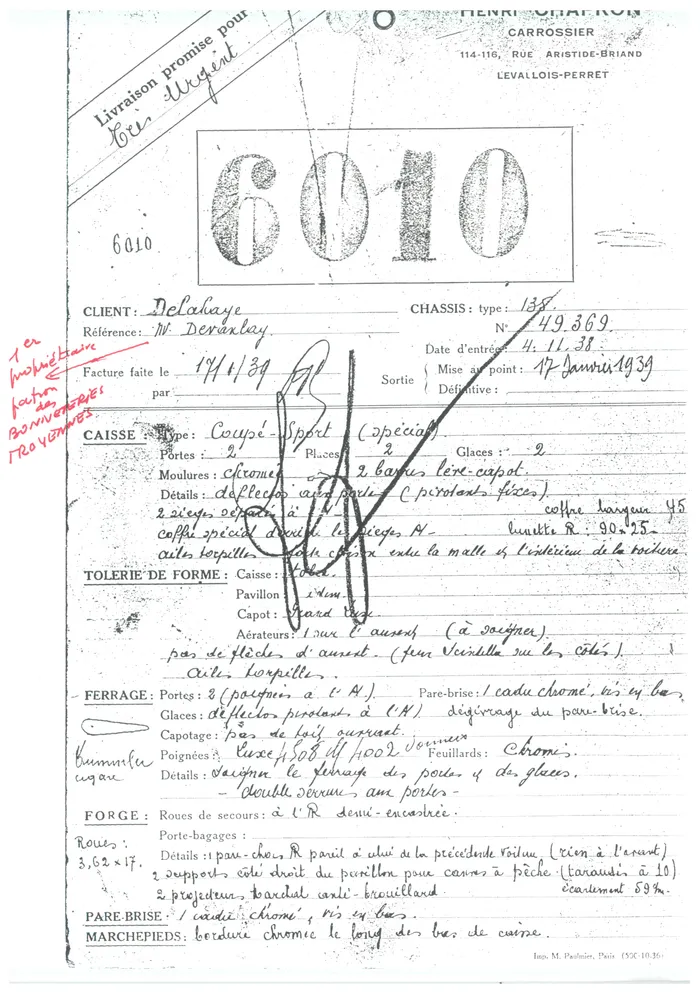 HENRI CHAPRON
CARROSSIER
114-116, RUE ARISTIDE-BRIAND
LEVALLOIS-PERRET
Livraison promise pour
Très Urgent
6010
6010
CLIENT: Delahaye
Référence: M. Devanlay.
CHASSIS: type: 135.
N° 49.369.
Date d'entrée: 4. 11. 38.
Mise au point: 17 Janvier 1939
Sortie
Définitive:
Facture faite le 17/1/39
par
1er
propriétaire
patron
des
BONNETERIES
TROYENNES
CAISSE: Type: Coupé-Sport (spécial)
Portes: 2 Places 2 Glaces: 2
Moulures: chromé 2 barres lève-capot.
Détails: deflectos aux portes (pivotants fixes).
2 sieges séparés à l'AV-
coffre largeur 45
coffre spécial les sieges AV-
lunette R: 90 x 25-
ailes torpilles entre la malle & l'intérieur de la voiture
TOLERIE DE FORME: Caisse: tolée.
Pavillon idem.
Capot: Grand Luxe.
Aérateurs: 1 sur l'auvent (à soigner)
pas de flèches d'auvent. (feux Scintella sur les côtés).
ailes torpilles.
FERRAGE: Portes: 2 (poignées à l'AV.) Pare-brise: 1 cadre chromé, vis en bas.
Glaces: déflectos pivotants à l'AV. dégivrage du pare-brise.
Capotage: pas de toit ouvrant.
Poignées: Luxe 4508 & 4002 Feuillards: Chromés.
cigare
Détails: Soigner le ferrage des portes & des glaces.
- double serrures aux portes -
FORGE: Roues de secours: à l'R demi-encastrée.
Porte-bagages:
Roues:
3,62 x 17.
Détails: 1 pare-chocs R pareil à celui de la précédente voiture (rien à l'avant)
2 supports côté droit du pavillon pour cannes à pêche (taraudés à 10)
2 projecteurs Marchal anti-brouillard
écartement 59
PARE-BRISE 1 cadre chromé, vis en bas.
MARCHEPIEDS: bordure chromée le long des bas de caisse.
Imp. M. Paulmier, Paris (500-10.36)